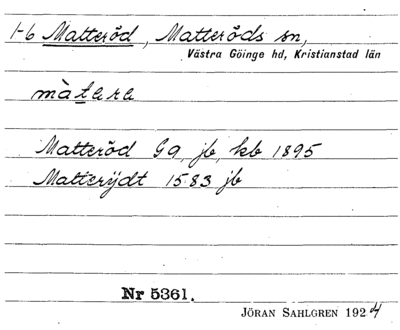 1-6 Matteröd, Matteröds sn,
Västra Göinge hd, Kristianstad län
màtara
Matteröd Ga, jb, kb 1895
Matterÿdt 1583 jb
Nr 5361.
JÖRAN SAHLGREN 1924